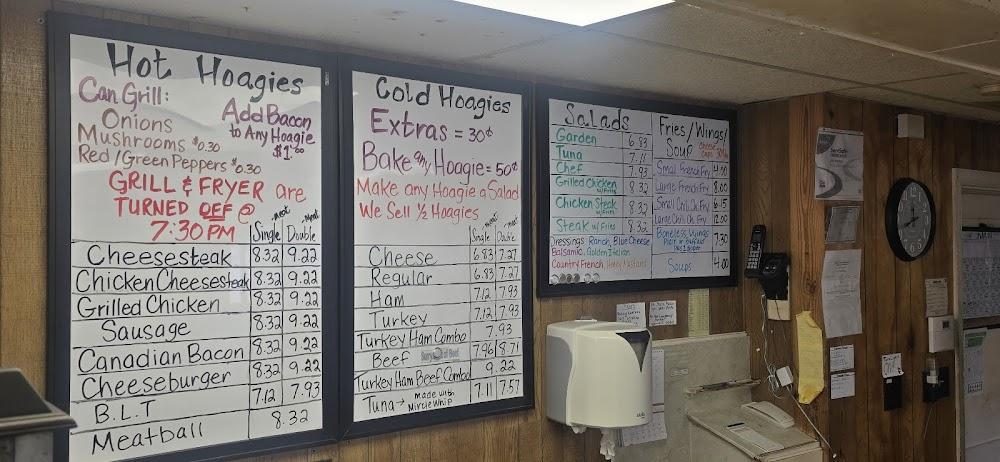 Hot Hoagies
Can Grill:
Onions
Mushrooms $0.30
Red/Green Peppers $0.30
Add Bacon
to Any Hoagie
$1.00
GRILL & FRYER are
TURNED OFF @
7:30 PM
Single Double
Cheesesteak 8.32 9.22
Chicken Cheesesteak 8.32 9.22
Grilled Chicken 8.32 9.22
Sausage 8.32 9.22
Canadian Bacon 8.32 9.22
Cheeseburger 8.32 9.22
B.L.T 7.12 7.93
Meatball 8.32
Cold Hoagies
Extras = 30¢
Bake any Hoagie = 50¢
Make any Hoagie a Salad
We Sell ½ Hoagies
Single Double
Cheese 6.83 7.27
Regular 6.83 7.27
Ham 7.12 7.93
Turkey 7.12 7.93
Turkey Ham Combo 7.93
Beef 7.96 8.71
Turkey Ham Beef Combo 9.22
Tuna → made with Mircle Whip 7.11 7.57
Salads
Garden 6.83
Tuna 7.11
Chef 7.93
Grilled Chicken w/Fries 8.32
Chicken Steak w/Fries 8.32
Steak w/Fries 8.32
Dressings Ranch, Blue Cheese
Balsamic, Golden Italian
Country French, Honey Mustard
Fries/Wings/
Soup
Small French Fry 4.00
Large French Fry 8.00
Small Chili Ch. Fry 6.15
Large Chili Ch. Fry 12.00
Boneless Wings 7.30
Plain or Buffalo
Soups 4.00